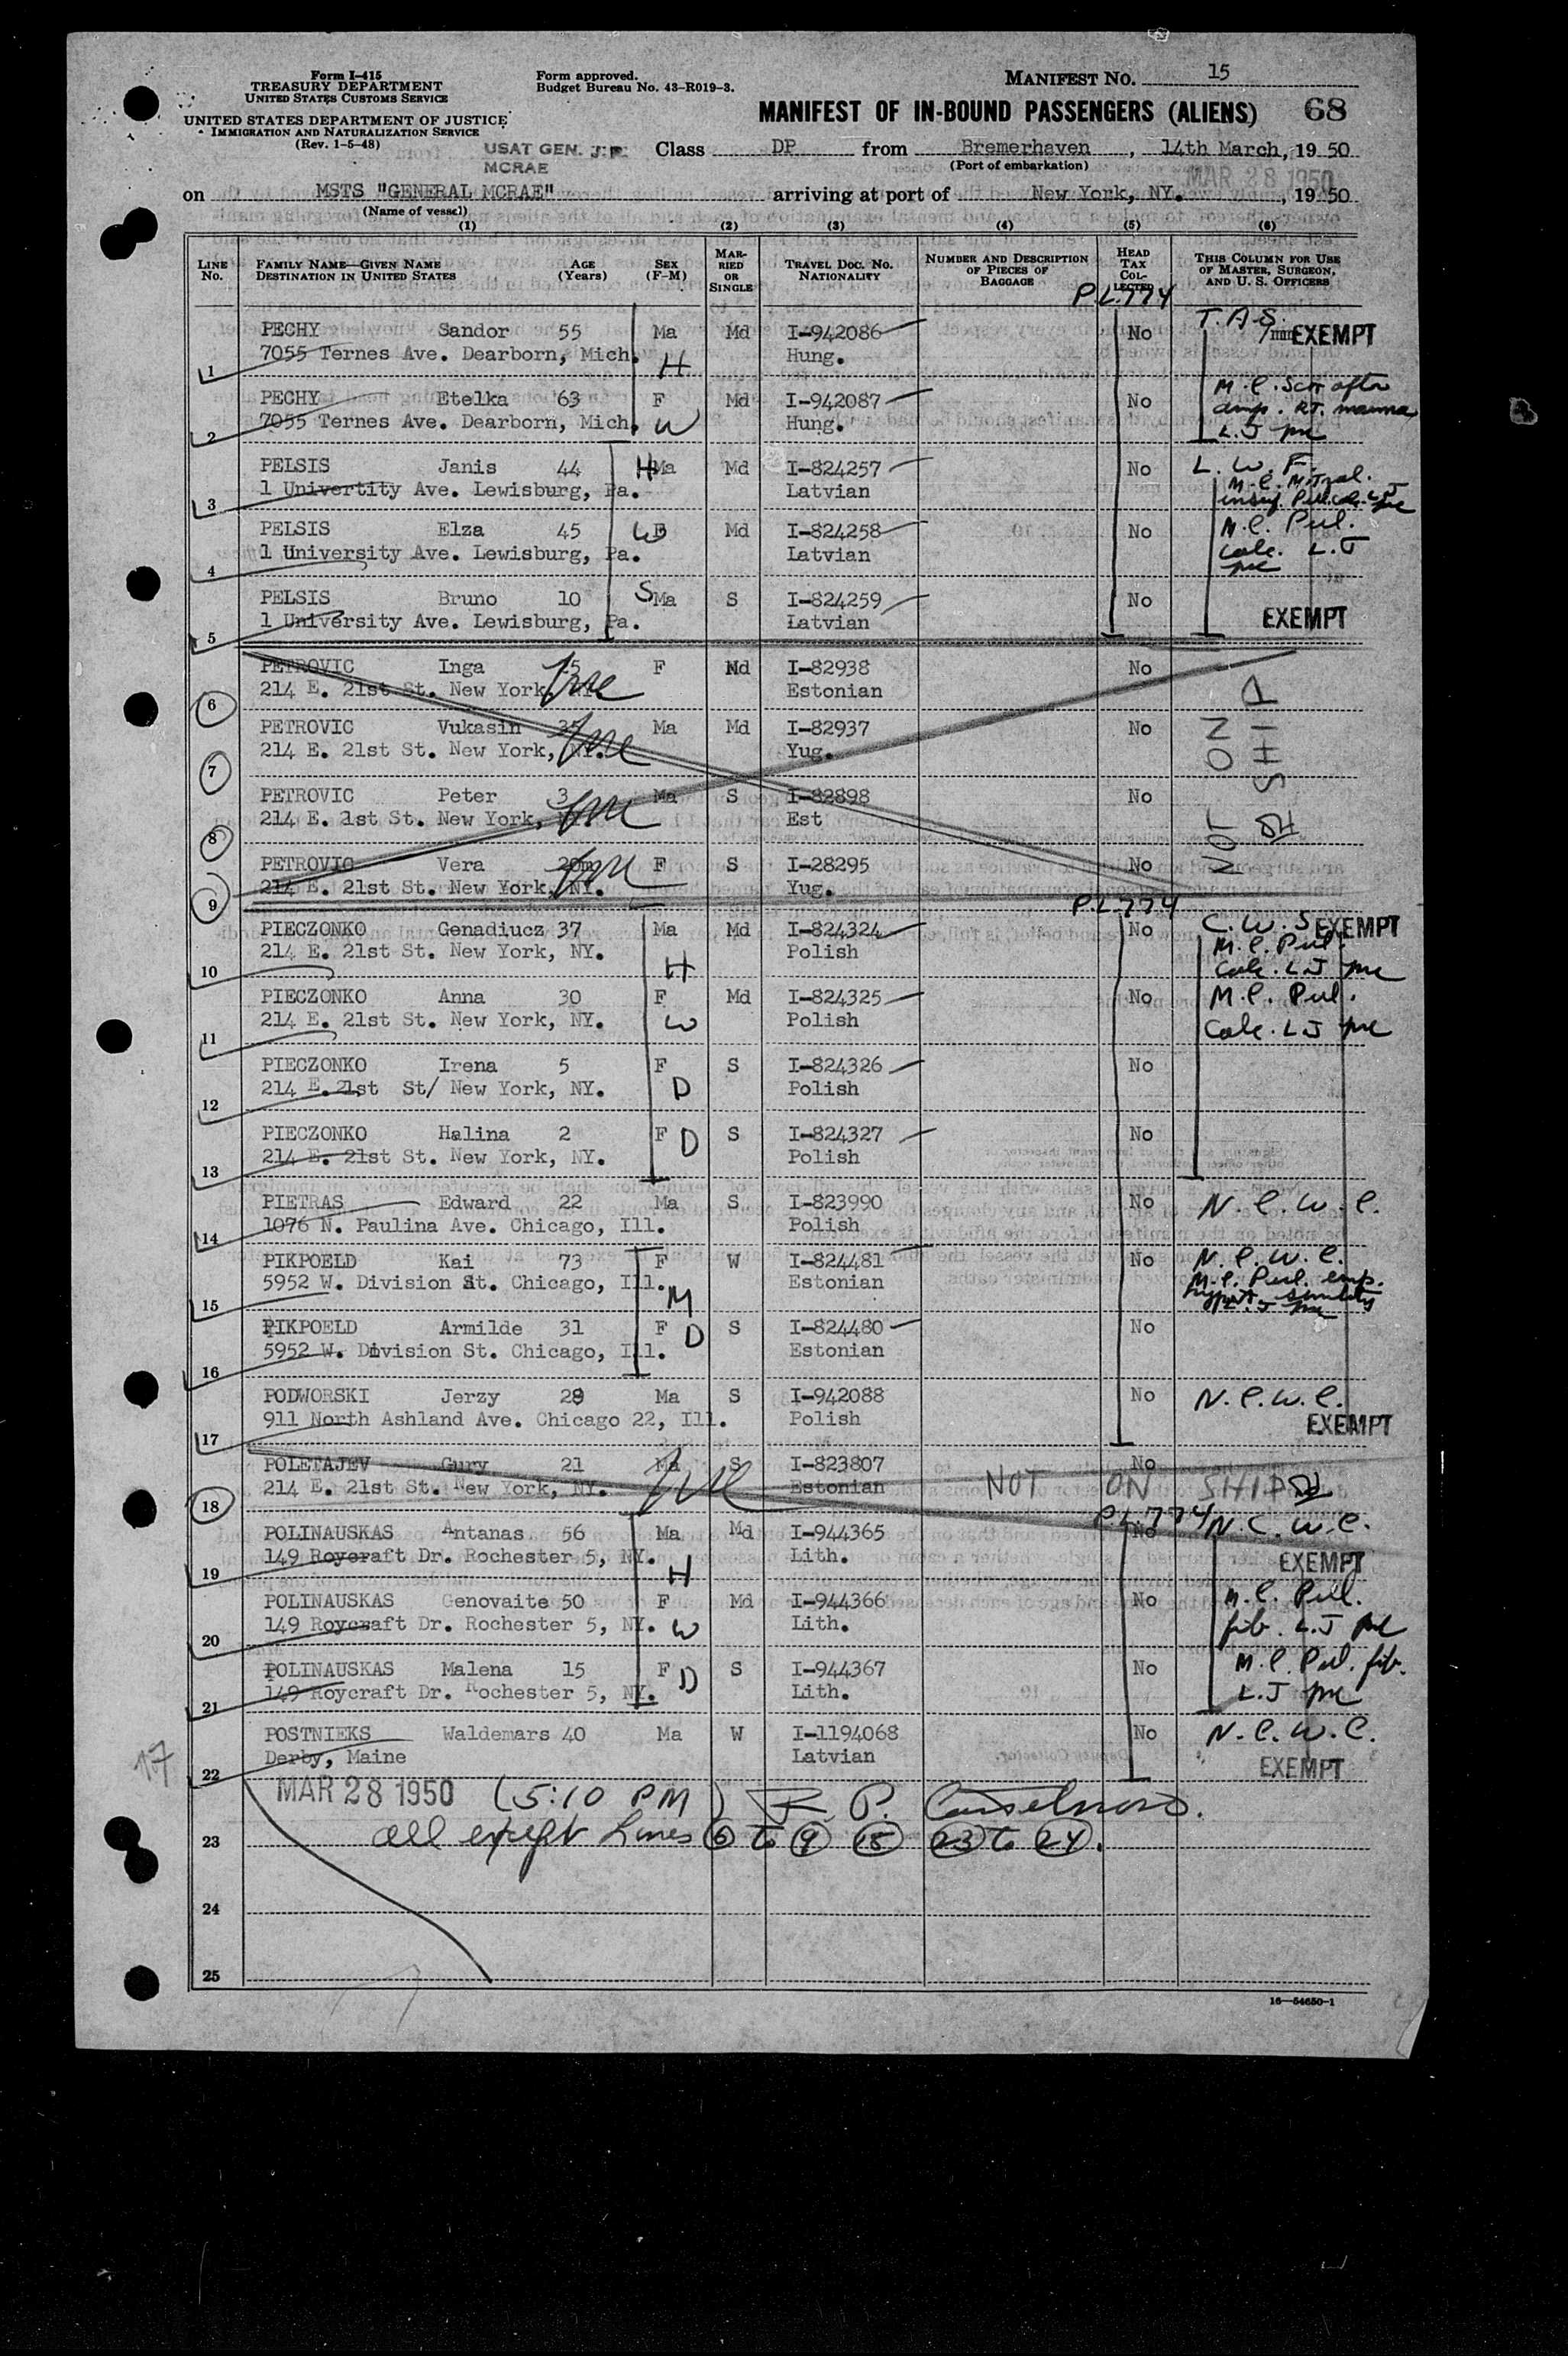 Form I-415
TREASURY DEPARTMENT
UNITED STATES CUSTOMS SERVICE
UNITED STATES DEPARTMENT OF JUSTICE
IMMIGRATION AND NATURALIZATION SERVICE
(Rev. 1-5-48)
Form approved.
Budget Bureau No. 43-R019-3.
MANIFEST NO. 15
MANIFEST OF IN-BOUND PASSENGERS (ALIENS) 68
USAT GEN. J.P.
MCRAE
Class DP from Bremerhaven, 14th March, 1950
(Port of embarkation)
MAR 28 1950
on MSTS "GENERAL MCRAE" arriving at port of New York, NY., 1950
(Name of vessel)
(1) (2) (3) (4) (5) (6)
LINE No. FAMILY NAME—GIVEN NAME DESTINATION IN UNITED STATES AGE (Years) SEX (F-M) MARRIED OR SINGLE TRAVEL DOC. NO. NATIONALITY NUMBER AND DESCRIPTION OF PIECES OF BAGGAGE HEAD TAX COLLECTED THIS COLUMN FOR USE OF MASTER, SURGEON, AND U. S. OFFICERS
P.L.774
T.A.S.
PECHY Sandor 55 Ma Md I-942086 No EXEMPT
1 7055 Ternes Ave. Dearborn, Mich. H Hung.
PECHY Etelka 63 F Md I-942087 No M.C. Scar after
2 7055 Ternes Ave. Dearborn, Mich. W Hung. amp. RT. mamma
L.J
PELSIS Janis 44 H Ma Md I-824257 No L.W.F.
3 1 Univertity Ave. Lewisburg, Pa. Latvian M.C. Mitral.
PELSIS Elza 45 W Md I-824258 No M.C. Pul.
4 1 University Ave. Lewisburg, Pa. Latvian Calc. L.J
PELSIS Bruno 10 S Ma S I-824259 No
5 1 University Ave. Lewisburg, Pa. Latvian EXEMPT
PETROVIC Inga F Md I-82938 No
6 214 E. 21st St. New York, NY. Estonian
PETROVIC Vukasin Ma Md I-82937 No
7 214 E. 21st St. New York, NY. Yug.
PETROVIC Peter 3 Ma S I-82898 No
8 214 E. 1st St. New York, Est
PETROVIC Vera 20m F S I-28295 No
9 214 E. 21st St. New York, NY. Yug.
NOT ON SHIP
P.L.774
PIECZONKO Genadiucz 37 Ma Md I-824324 No C.W.S. EXEMPT
10 214 E. 21st St. New York, NY. H Polish M.C. Pul.
Calc. L.J
PIECZONKO Anna 30 F Md I-824325 No M.C. Pul.
11 214 E. 21st St. New York, NY. W Polish Calc. L.J
PIECZONKO Irena 5 F S I-824326 No
12 214 E. 21st St/ New York, NY. D Polish
PIECZONKO Halina 2 F D S I-824327 No
13 214 E. 21st St. New York, NY. Polish
PIETRAS Edward 22 Ma S I-823990 No N.C.W.C.
14 1076 N. Paulina Ave. Chicago, Ill. Polish
PIKPOELD Kai 73 F W I-824481 No N.C.W.C.
15 5952 W. Division St. Chicago, Ill. M Estonian M.C. Pul. emp.
PIKPOELD Armilde 31 F D S I-824480 No
16 5952 W. Division St. Chicago, Ill. Estonian
PODWORSKI Jerzy 28 Ma S I-942088 No N.C.W.C.
17 911 North Ashland Ave. Chicago 22, Ill. Polish EXEMPT
POLETAJEV Gury 21 Ma S I-823807 No
18 214 E. 21st St. New York, NY. Estonian NOT ON SHIP
P.L.774
POLINAUSKAS Antanas 56 Ma Md I-944365 No N.C.W.C.
19 149 Roycraft Dr. Rochester 5, NY. H Lith. EXEMPT
POLINAUSKAS Genovaite 50 F Md I-944366 No M.C. Pul.
20 149 Roycraft Dr. Rochester 5, NY. W Lith. fib. L.J
POLINAUSKAS Malena 15 F D S I-944367 No M.C. Pul. fib.
21 149 Roycraft Dr. Rochester 5, NY. Lith. L.J
POSTNIEKS Waldemars 40 Ma W I-1194068 No N.C.W.C.
22 Derby, Maine Latvian EXEMPT
17
MAR 28 1950 (5:10 PM)
23 all except Lines 6 to 9 18 23 to 24.
24
25
16—54650-1